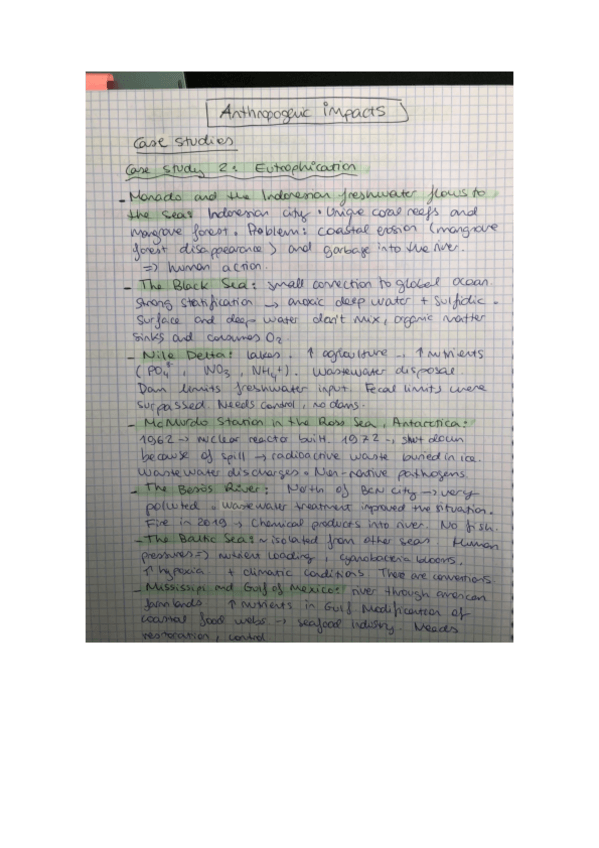 Anthropogenic impacts
Case studies
Case study 2: Eutrophication
- Manado and the Indonesian freshwater flows to
the sea: Indonesian city. Unique coral reefs and
mangrove forest. Problem: coastal erosion (mangrove
forest disappearance) and garbage into the river.
=> human action.
- The Black Sea: small connection to global ocean.
Strong stratification → anoxic deep water + sulfidic.
Surface and deep water don't mix, organic matter
sinks and consumes O2
- Nile Delta: lakes. ↑ agriculture → ↑ nutrients
NO3, NH4+). Wastewater disposal.
Dam limits freshwater input. Fecal limits were
surpassed. Needs control, no dams.
- McMurdo Station in the Ross Sea, Antarctica:
1962 → nuclear reactor built. 1972 → shut down
because of spill → radioactive waste buried in ice.
Wastewater discharges. Non-native pathogens.
- The Besòs River: North of BCN city → very
polluted. Wastewater treatment improved the situation.
Fire in 2019 → Chemical products into river. No fish.
- The Baltic Sea: ~isolated from other seas. Human
pressures => nutrient loading, cyanobacteria blooms,
↑ hypoxia + climatic conditions. There are conventions.
- Mississipi and Gulf of Mexico: river through american
farmlands ↑ nutrients in Gulf. Modification of
coastal food webs → seafood industry. Needs
restoration, control